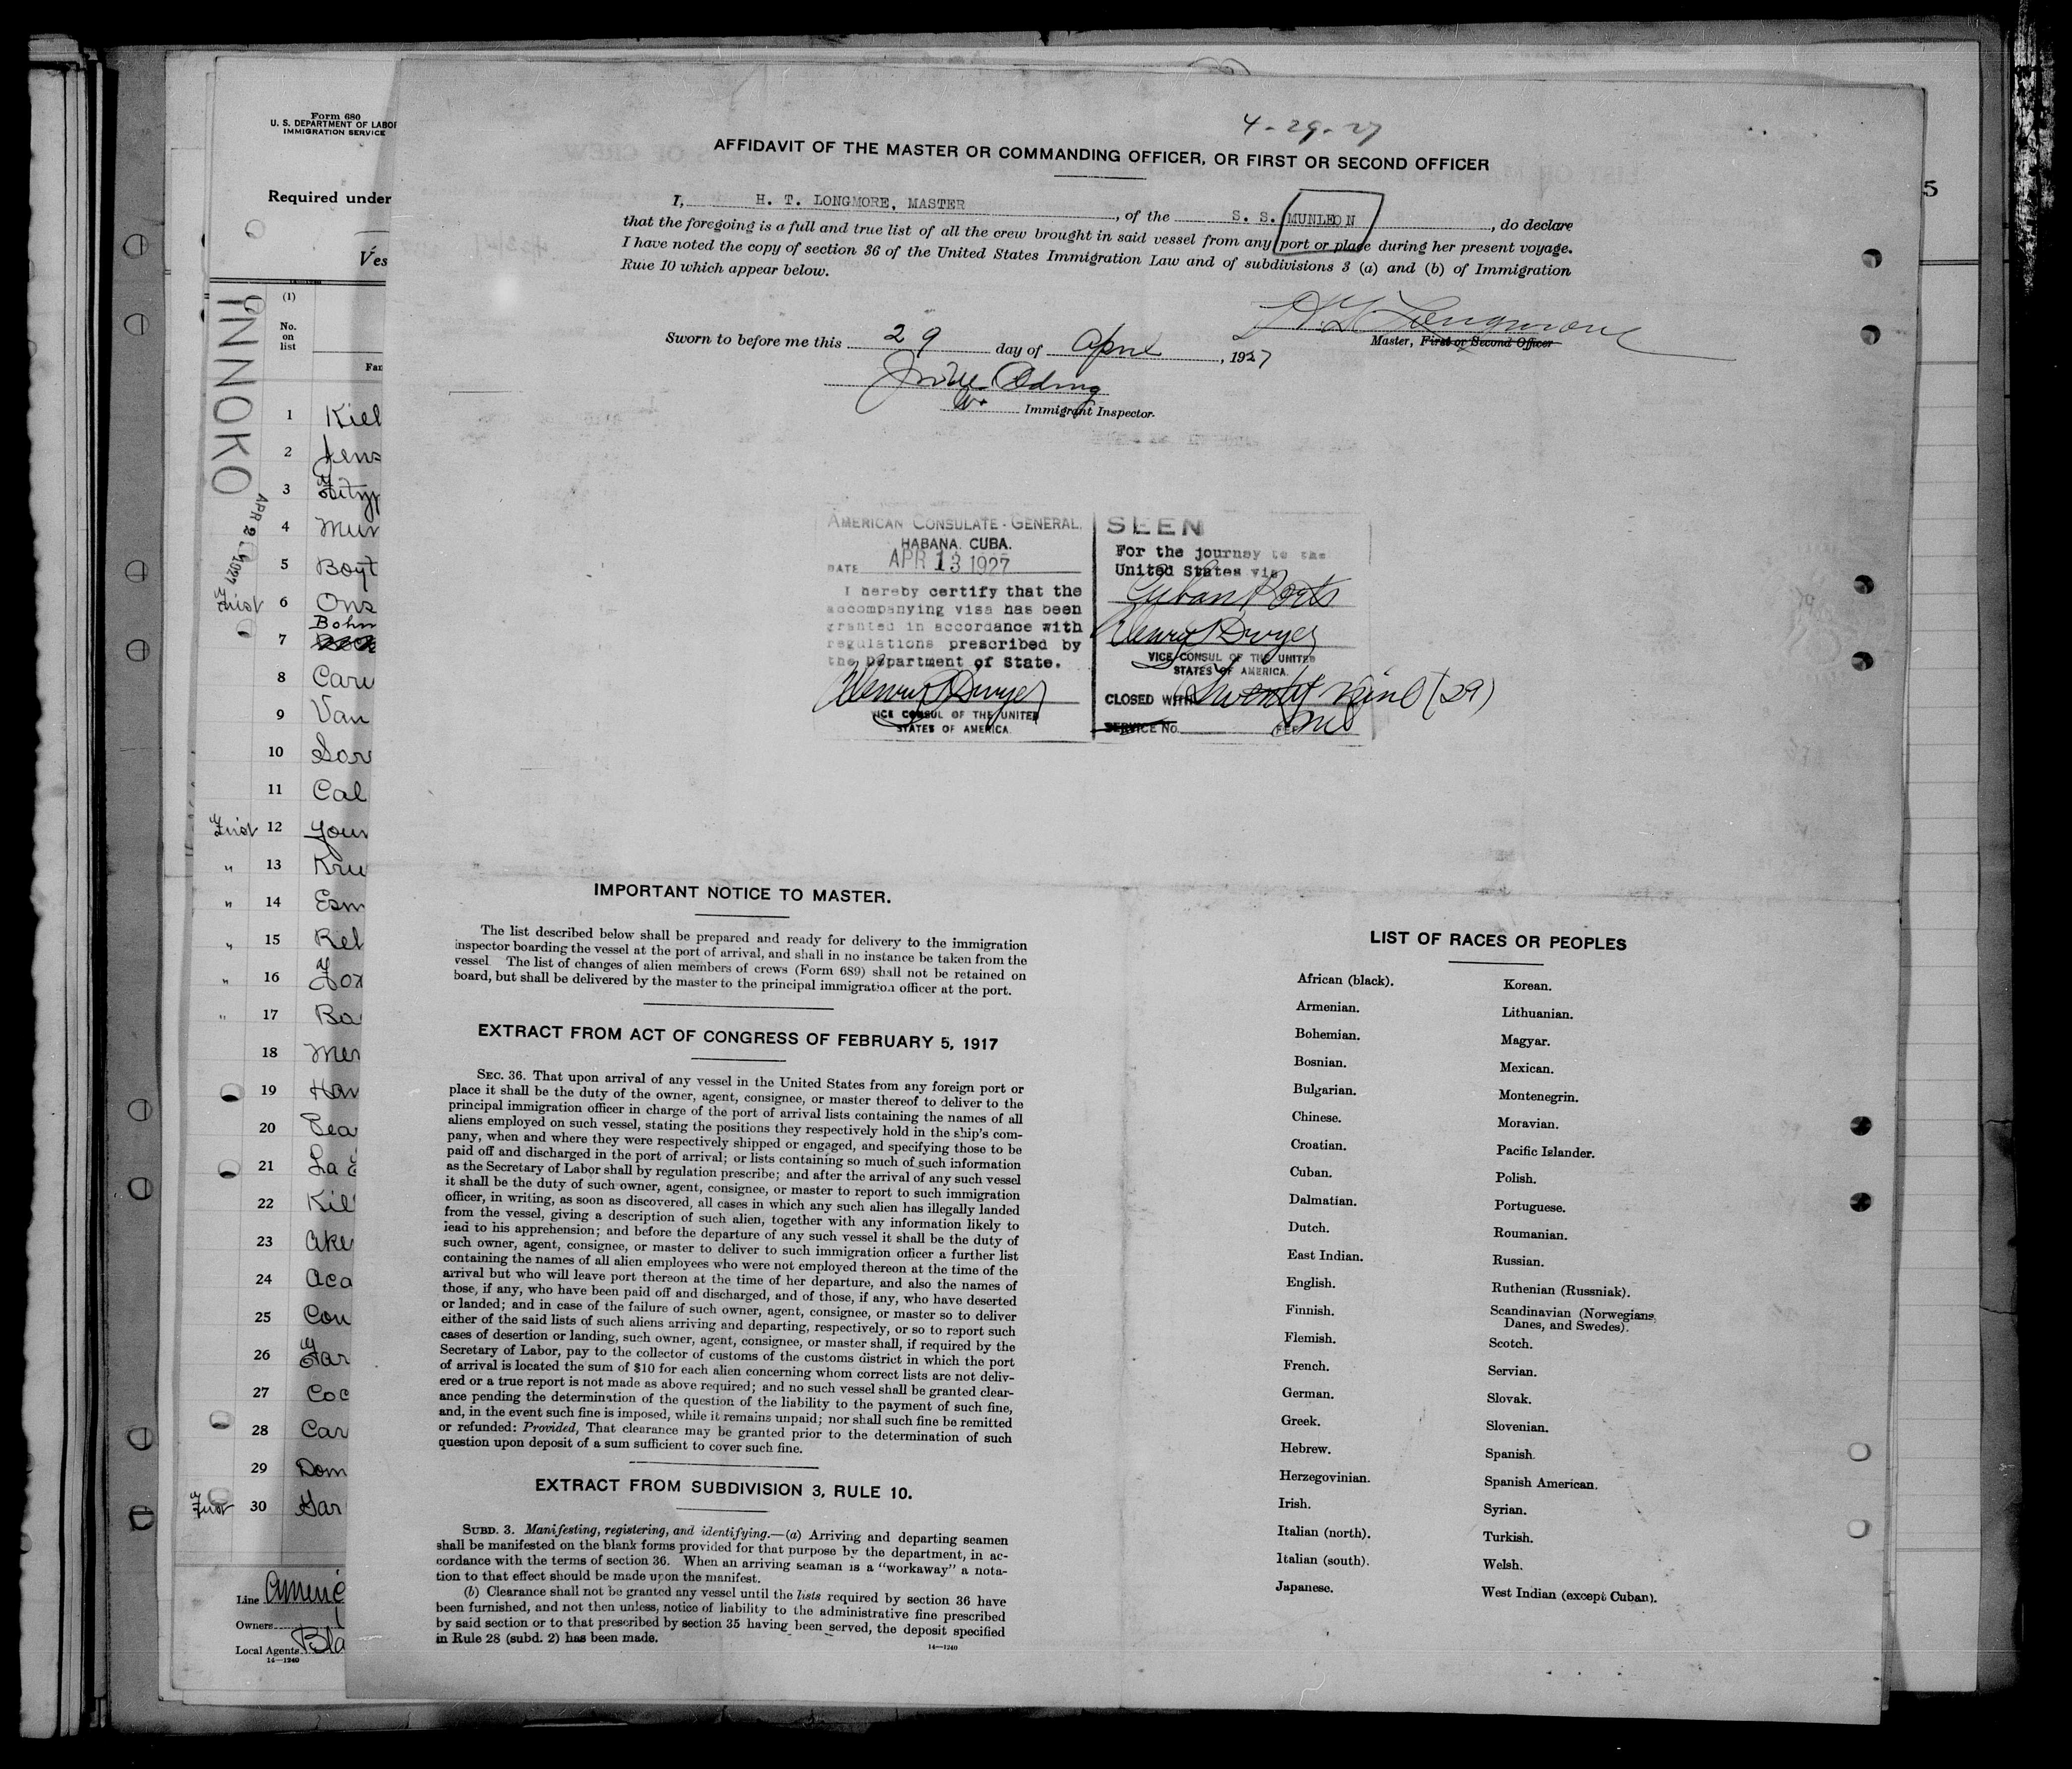 Form 680
U. S. DEPARTMENT OF LABOR
IMMIGRATION SERVICE
Required under
Ves
(1)
No.
on
list
INNOKO
APR 2 1927
1 Kiel
2 Jens
3 Fitzp
4 Mur
5 Boyt
First 6 Ons
Bohn
7
8 Care
9 Van
10 Sor
11 Cal
First 12 Your
" 13 Kru
" 14 Esm
" 15 Rel
" 16 Fox
" 17 Ba
18 Mer
19 Han
20 Pea
21 La
22 Kil
23 Ake
24 Aca
25 Cou
26 Far
27 Coc
28 Car
29 Dom
First 30 Gar
Line Americ
Owners
Local Agents Bla
14—1240
5
4-29-27
AFFIDAVIT OF THE MASTER OR COMMANDING OFFICER, OR FIRST OR SECOND OFFICER
I, H. T. LONGMORE, MASTER, of the S. S. MUNLEON, do declare
that the foregoing is a full and true list of all the crew brought in said vessel from any port or place during her present voyage.
I have noted the copy of section 36 of the United States Immigration Law and of subdivisions 3 (a) and (b) of Immigration
Rule 10 which appear below.
H. T. Longmore
Master, First or Second Officer
Sworn to before me this 29 day of April, 1927
Immigrant Inspector.
AMERICAN CONSULATE-GENERAL.
HABANA. CUBA.
DATE APR 13 1927
I hereby certify that the
accompanying visa has been
granted in accordance with
regulations prescribed by
the Department of State.
Henry Dwyer
VICE CONSUL OF THE UNITED
STATES OF AMERICA.
SEEN
For the journey to the
United States via
Cuban Ports
Henry Dwyer
VICE CONSUL OF THE UNITED
STATES OF AMERICA.
CLOSED WITH Twenty nine (29)
SERVICE No. FEE
IMPORTANT NOTICE TO MASTER.
The list described below shall be prepared and ready for delivery to the immigration
inspector boarding the vessel at the port of arrival, and shall in no instance be taken from the
vessel The list of changes of alien members of crews (Form 689) shall not be retained on
board, but shall be delivered by the master to the principal immigration officer at the port.
EXTRACT FROM ACT OF CONGRESS OF FEBRUARY 5, 1917
SEC. 36. That upon arrival of any vessel in the United States from any foreign port or
place it shall be the duty of the owner, agent, consignee, or master thereof to deliver to the
principal immigration officer in charge of the port of arrival lists containing the names of all
aliens employed on such vessel, stating the positions they respectively hold in the ship's com-
pany, when and where they were respectively shipped or engaged, and specifying those to be
paid off and discharged in the port of arrival; or lists containing so much of such information
as the Secretary of Labor shall by regulation prescribe; and after the arrival of any such vessel
it shall be the duty of such owner, agent, consignee, or master to report to such immigration
officer, in writing, as soon as discovered, all cases in which any such alien has illegally landed
from the vessel, giving a description of such alien, together with any information likely to
lead to his apprehension; and before the departure of any such vessel it shall be the duty of
such owner, agent, consignee, or master to deliver to such immigration officer a further list
containing the names of all alien employees who were not employed thereon at the time of the
arrival but who will leave port thereon at the time of her departure, and also the names of
those, if any, who have been paid off and discharged, and of those, if any, who have deserted
or landed; and in case of the failure of such owner, agent, consignee, or master so to deliver
either of the said lists of such aliens arriving and departing, respectively, or so to report such
cases of desertion or landing, such owner, agent, consignee, or master shall, if required by the
Secretary of Labor, pay to the collector of customs of the customs district in which the port
of arrival is located the sum of $10 for each alien concerning whom correct lists are not deliv-
ered or a true report is not made as above required; and no such vessel shall be granted clear-
ance pending the determination of the question of the liability to the payment of such fine,
and, in the event such fine is imposed, while it remains unpaid; nor shall such fine be remitted
or refunded: Provided, That clearance may be granted prior to the determination of such
question upon deposit of a sum sufficient to cover such fine.
EXTRACT FROM SUBDIVISION 3, RULE 10.
SUBD. 3. Manifesting, registering, and identifying.—(a) Arriving and departing seamen
shall be manifested on the blank forms provided for that purpose by the department, in ac-
cordance with the terms of section 36. When an arriving seaman is a "workaway" a nota-
tion to that effect should be made upon the manifest.
(b) Clearance shall not be granted any vessel until the lists required by section 36 have
been furnished, and not then unless, notice of liability to the administrative fine prescribed
by said section or to that prescribed by section 35 having been served, the deposit specified
in Rule 28 (subd. 2) has been made.
14—1240
LIST OF RACES OR PEOPLES
African (black).
Armenian.
Bohemian.
Bosnian.
Bulgarian.
Chinese.
Croatian.
Cuban.
Dalmatian.
Dutch.
East Indian.
English.
Finnish.
Flemish.
French.
German.
Greek.
Hebrew.
Herzegovinian.
Irish.
Italian (north).
Italian (south).
Japanese.
Korean.
Lithuanian.
Magyar.
Mexican.
Montenegrin.
Moravian.
Pacific Islander.
Polish.
Portuguese.
Roumanian.
Russian.
Ruthenian (Russniak).
Scandinavian (Norwegians,
Danes, and Swedes).
Scotch.
Servian.
Slovak.
Slovenian.
Spanish.
Spanish American.
Syrian.
Turkish.
Welsh.
West Indian (except Cuban).